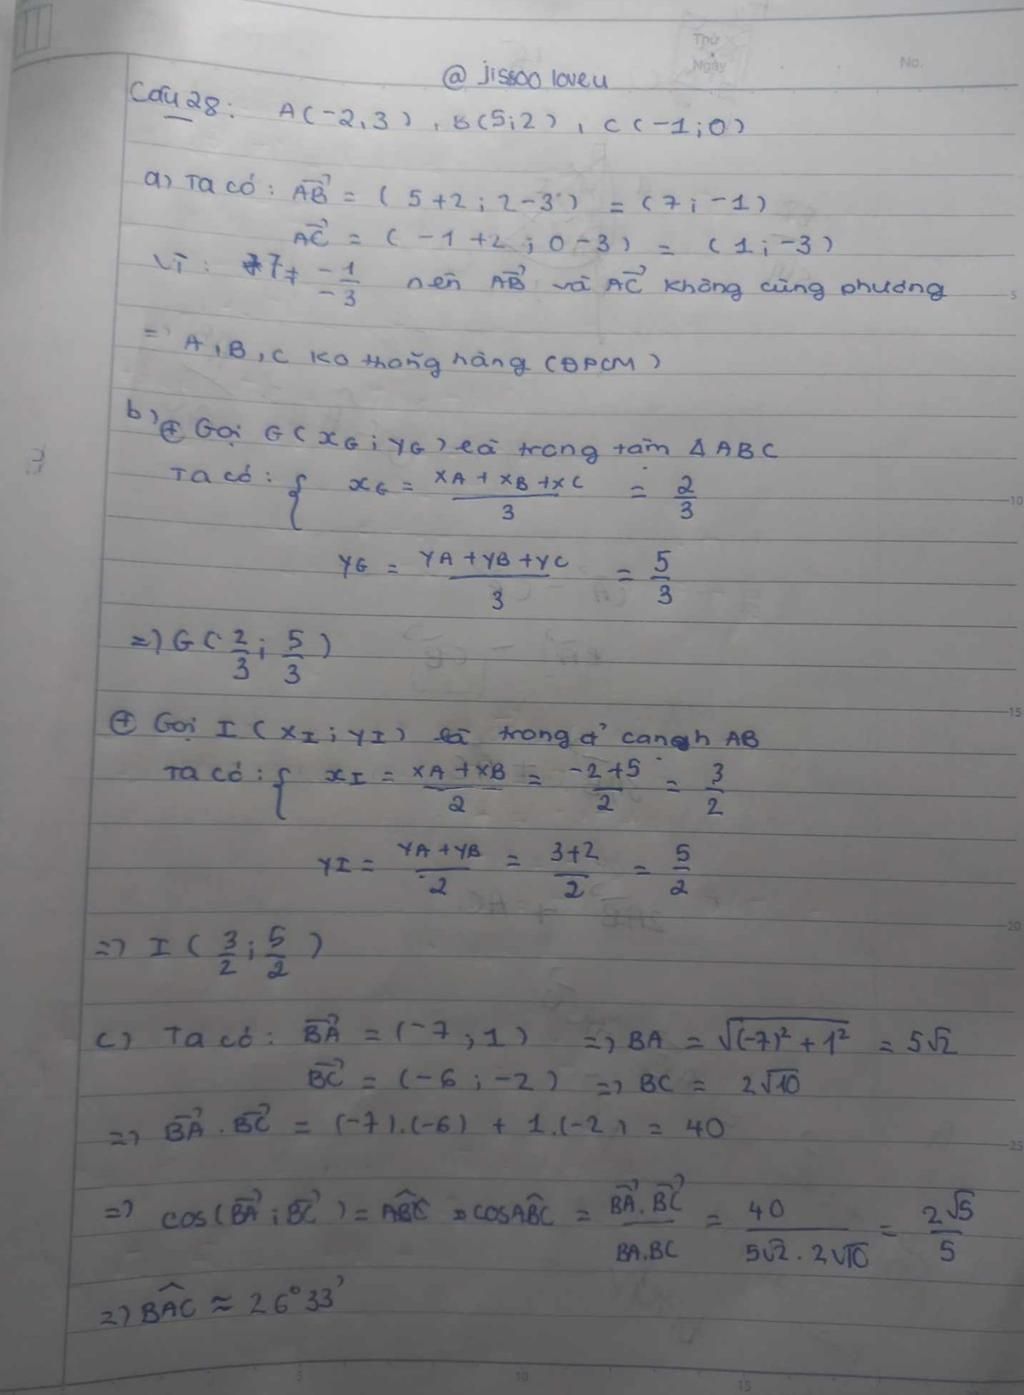 Thứ
Ngày
No.
@ jissoo loveu
Câu 28: A(-2,3), B(5;2), C(-1;0)
a) Ta có: $\overrightarrow{AB}$ = (5+2; 2-3) = (7; -1)
$\overrightarrow{AC}$ = (-1+2; 0-3) = (1; -3)
Vì: 7 ≠ $\frac{-1}{-3}$ nên $\overrightarrow{AB}$ và $\overrightarrow{AC}$ không cùng phương
=> A, B, C ko thẳng hàng (ĐPCM)
b) ⊕ Gọi G(xG; yG) là trọng tâm Δ ABC
Ta có: { xG = $\frac{xA + xB + xC}{3}$ = $\frac{2}{3}$
yG = $\frac{yA + yB + yC}{3}$ = $\frac{5}{3}$
=> G($\frac{2}{3}$; $\frac{5}{3}$)
⊕ Gọi I (xI; yI) là trong đ' canh AB
Ta có: { xI = $\frac{xA + xB}{2}$ = $\frac{-2+5}{2}$ = $\frac{3}{2}$
yI = $\frac{yA + yB}{2}$ = $\frac{3+2}{2}$ = $\frac{5}{2}$
=> I ($\frac{3}{2}$; $\frac{5}{2}$)
c) Ta có: $\overrightarrow{BA}$ = (-7; 1) => BA = $\sqrt{(-7)^2 + 1^2}$ = 5√2
$\overrightarrow{BC}$ = (-6; -2) => BC = 2√10
=> $\overrightarrow{BA}$ . $\overrightarrow{BC}$ = (-7).(-6) + 1.(-2) = 40
=> cos($\overrightarrow{BA}$; $\overrightarrow{BC}$) = $\widehat{ABC}$ = cos$\widehat{ABC}$ = $\frac{\overrightarrow{BA}.\overrightarrow{BC}}{BA.BC}$ = $\frac{40}{5√2 . 2√10}$ = $\frac{2√5}{5}$
=> $\widehat{BAC}$ ≈ 26°33'